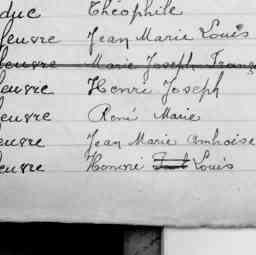 duc Théophile
leuvre Jean Marie Louis
leuvre Marie Joseph Franç
leuvre Henri Joseph
leuvre René Marie
leuvre Jean Marie Ambroise
leuvre Honoré Louis